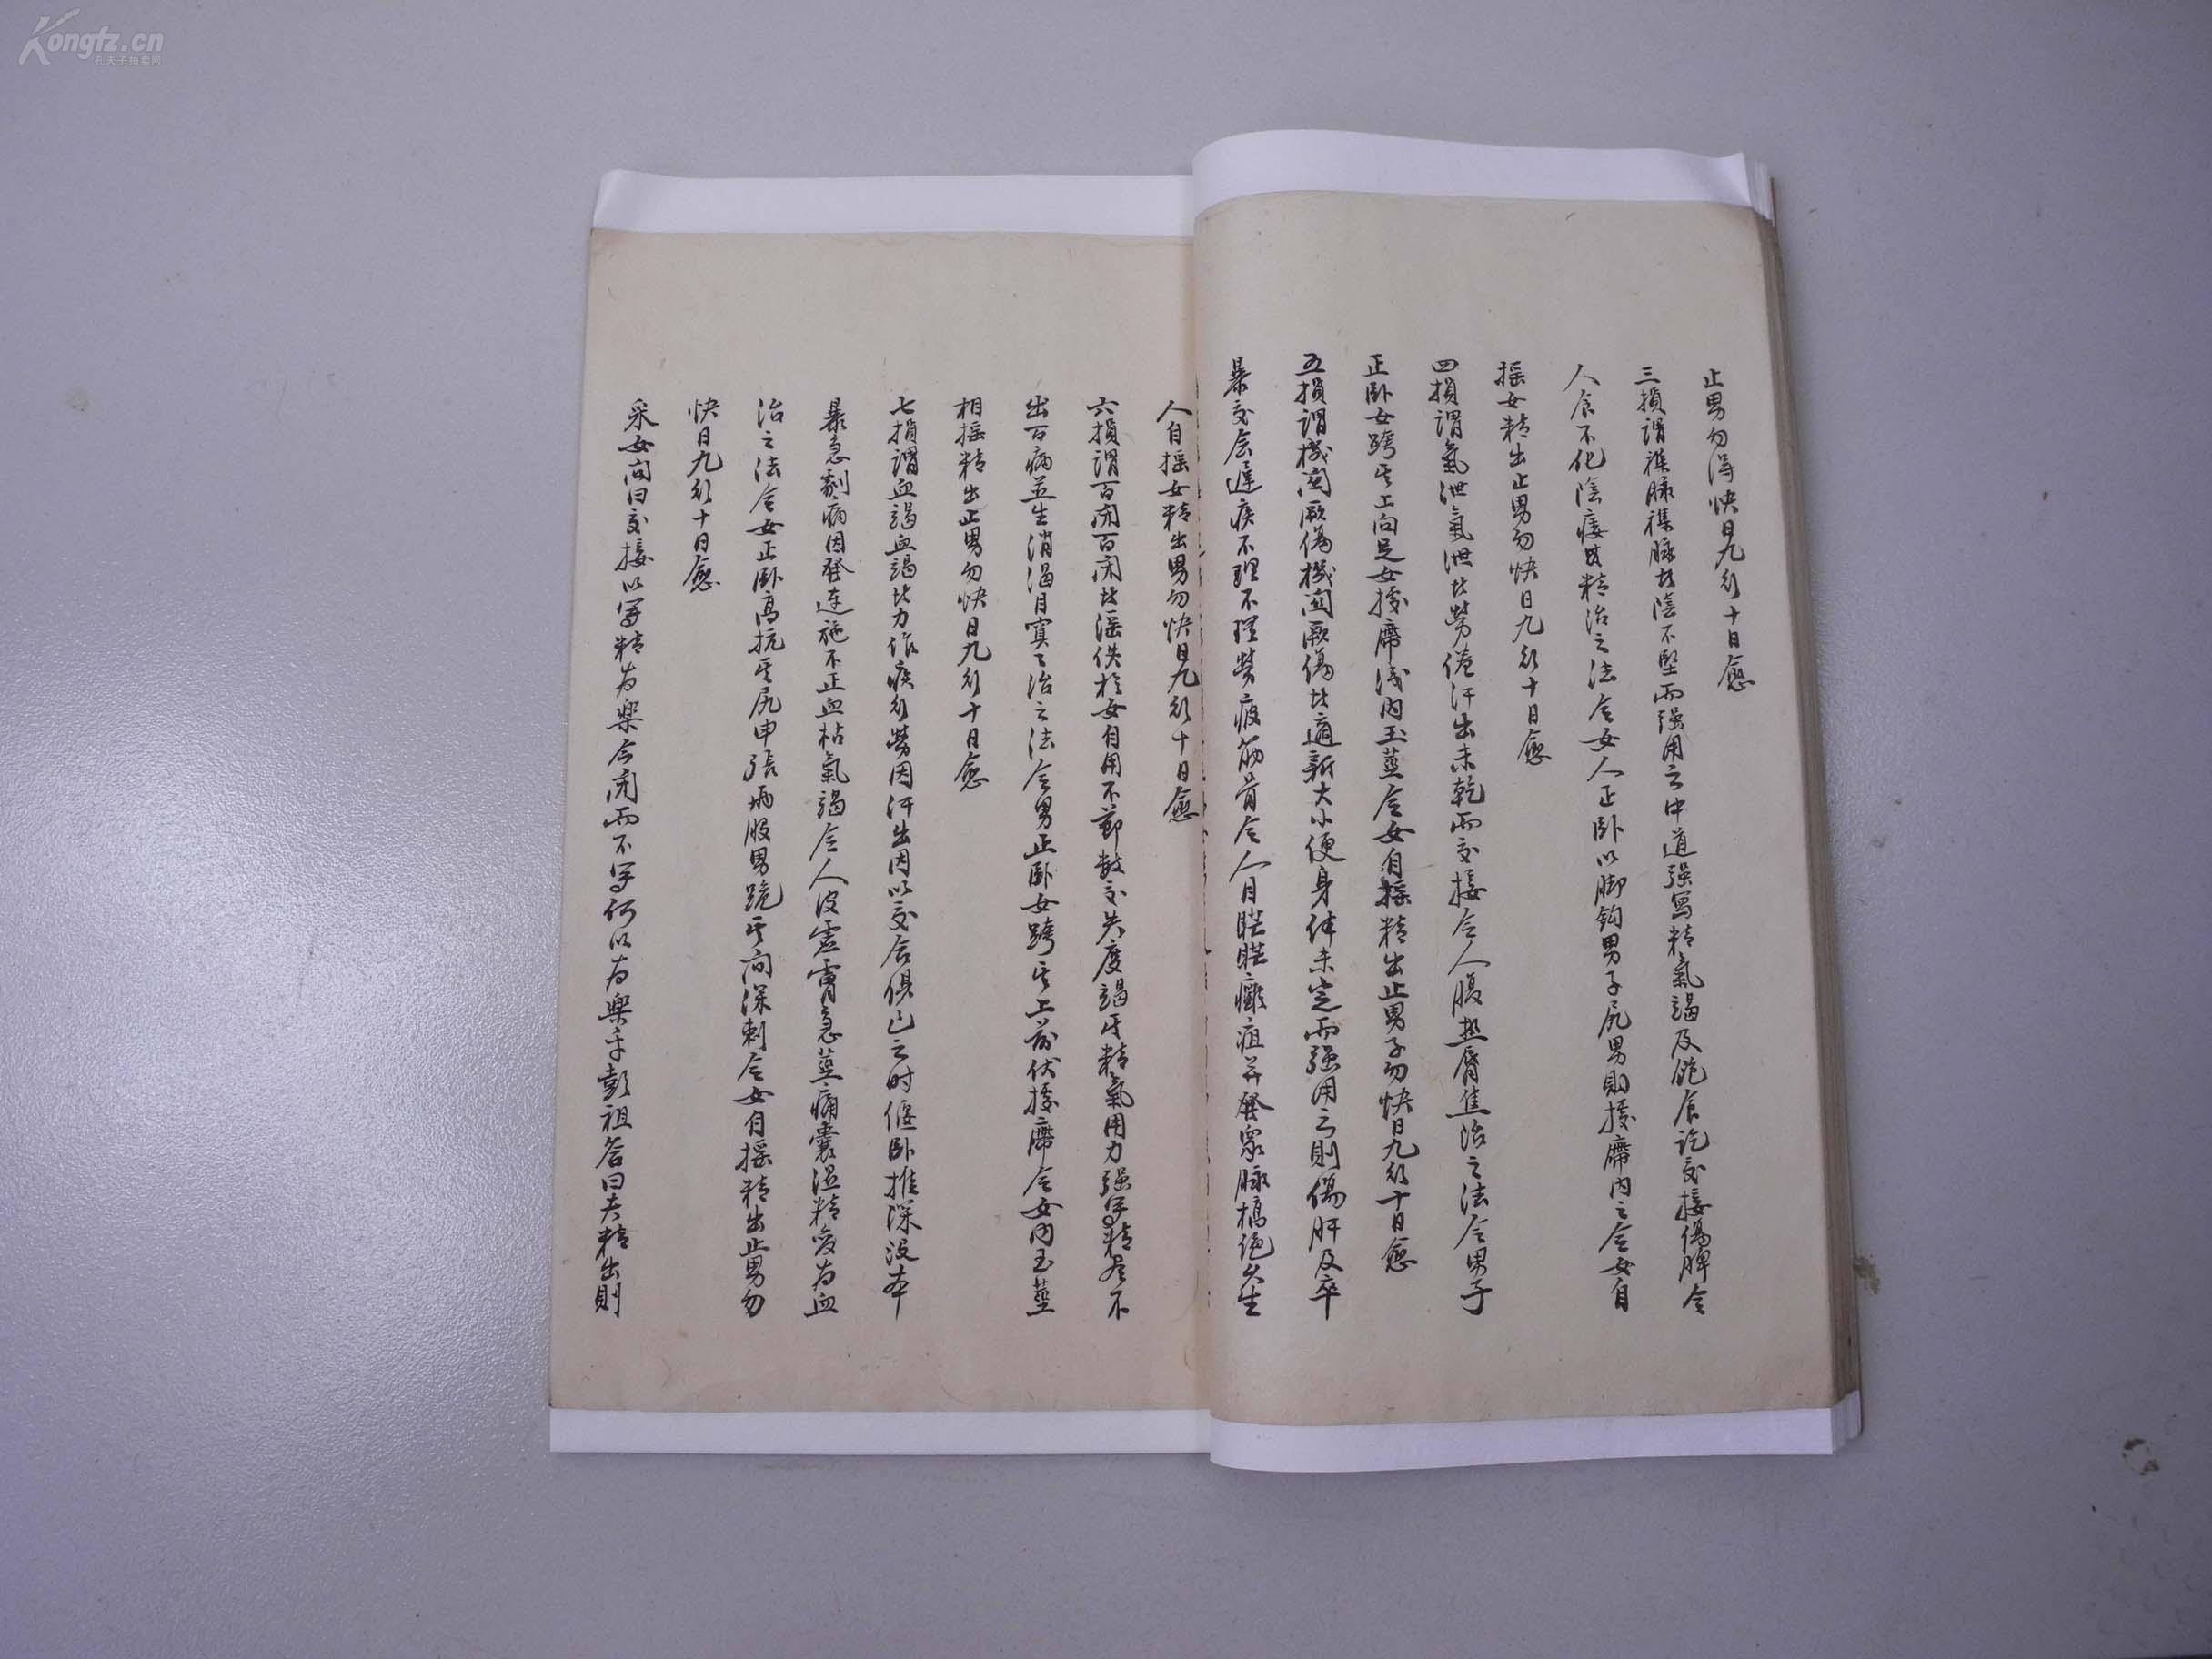 止男勿得快日九行十日愈
三損謂雜脉雜脉者陰不堅而强用之中道强寫精氣竭及飽食訖交接傷脾令
人食不化陰痿無精治之法令女人正卧以脚鈎男子尻男則據席内之令女自
摇女精出止男勿快日九行十日愈
四損謂氣泄氣泄者勞倦汗出未乾而交接令人腹热脣焦治之法令男子
正卧女跨其上向足女據席浅内玉莖令女自摇精出止男子勿快日九行十日愈
五損謂機関厥傷機関厥傷者適新大小便身体未定而强用之則傷肝及卒
暴交会遲疾不理不理勞疲筋骨令人目䀮䀮癰疽并發衆脉槁绝久生
人自摇女精出男勿快日九行十日愈
六損謂百閉百閉者滛佚於女自用不莭数交失度竭其精氣用力强寫精尽不
出百病並生消渴目㝠〻治之法令男正卧女跨其上前伏據席令女内玉莖
相摇精出止男勿快日九行十日愈
七損謂血竭血竭者力作疾行勞因汗出因以交合俱已之时偃卧推深没本
暴急劇病因發連施不止血枯氣竭令人皮虚膚急莖痛囊湿精变为血
治之法令女正卧高抗其尻申張两股男跪其间深刺令女自摇精出止男勿
快日九行十日愈
采女问曰交接以寫精为樂今闭而不寫何以为樂乎彭祖答曰夫精出則
Kongfz.cn
孔夫子拍卖网